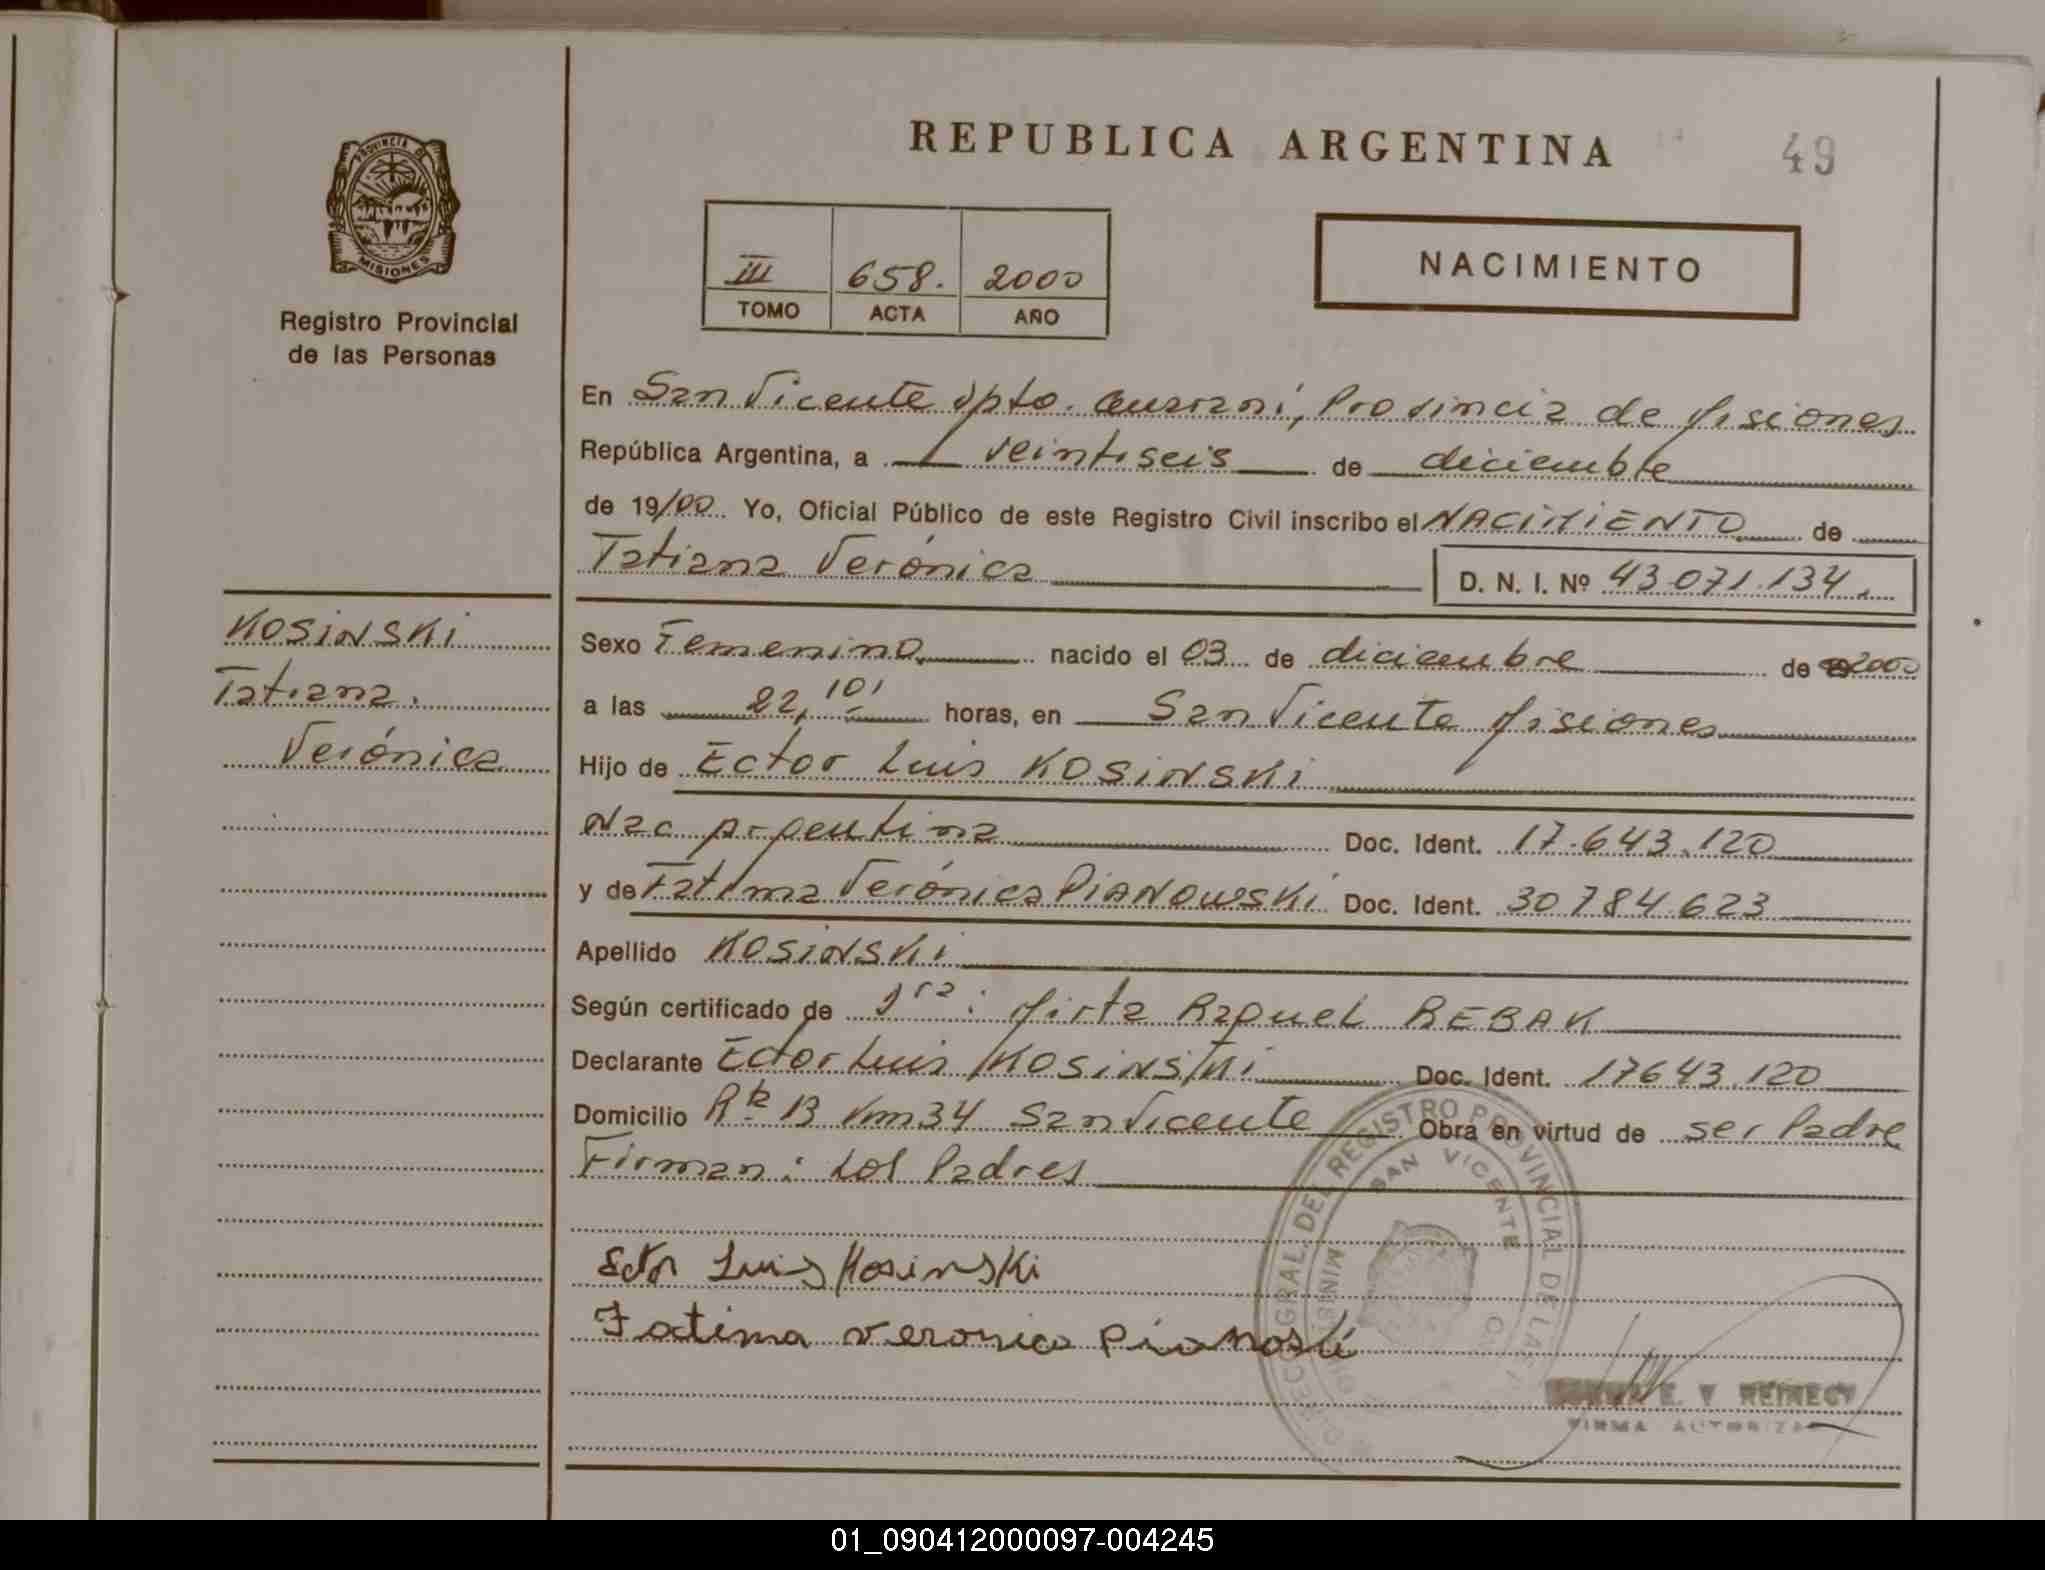 REPUBLICA ARGENTINA
49
PROVINCIA DE
MISIONES
Registro Provincial
de las Personas
III 658. 2000
TOMO ACTA AÑO
NACIMIENTO
En San Vicente Dpto. Guaraní, Provincia de Misiones
República Argentina, a veintiseis de diciembre
de 19/00 Yo, Oficial Público de este Registro Civil inscribo el NACIMIENTO de
Tatiana Verónica
D. N. I. Nº 43.071.134.
KOSINSKI
Tatiana
Verónica
Sexo Femenino nacido el 03 de diciembre de 2000
a las 22,10' horas, en San Vicente Misiones
Hijo de Ector Luis KOSINSKI
Nac Argentina Doc. Ident. 17.643.120
y de Fatima Verónica PIANOWSKI Doc. Ident. 30784623
Apellido KOSINSKI
Según certificado de Dra: Mirta Raquel REBAK
Declarante Ector Luis KOSINSKI Doc. Ident. 17643.120
Domicilio Rta 13 Km 34 San Vicente Obra en virtud de ser Padre
Firman: Los Padres
Ector Luis Kosinski
Fatima veronica Pianoski
GRAL. DEL REGISTRO PROVINCIAL DE LAS
SAN VICENTE
E. V REINECK
FIRMA AUTORIZA
01_090412000097-004245